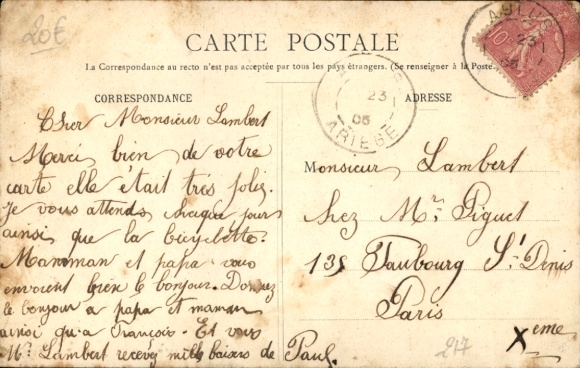 20€
CARTE POSTALE
La Correspondance au recto n'est pas acceptée par tous les pays étrangers. (Se renseigner à la Poste.)
CORRESPONDANCE
Cher Monsieur Lambert
Merci bien de votre
carte elle était très jolie.
Je vous attends chaque jour
ainsi que la bicyclette.
Mamman et papa vous
envoient bien le bonjour. Donnez
le bonjour a papa et maman
ainsi qu'a François. Et vous
Mr. Lambert recevez mille baisers de Paul.
AULUS
23
ARIEGE
23
05
ADRESSE
Monsieur Lambert
chez Mr. Piguet
135 Faubourg St. Denis
Paris
Xeme
217